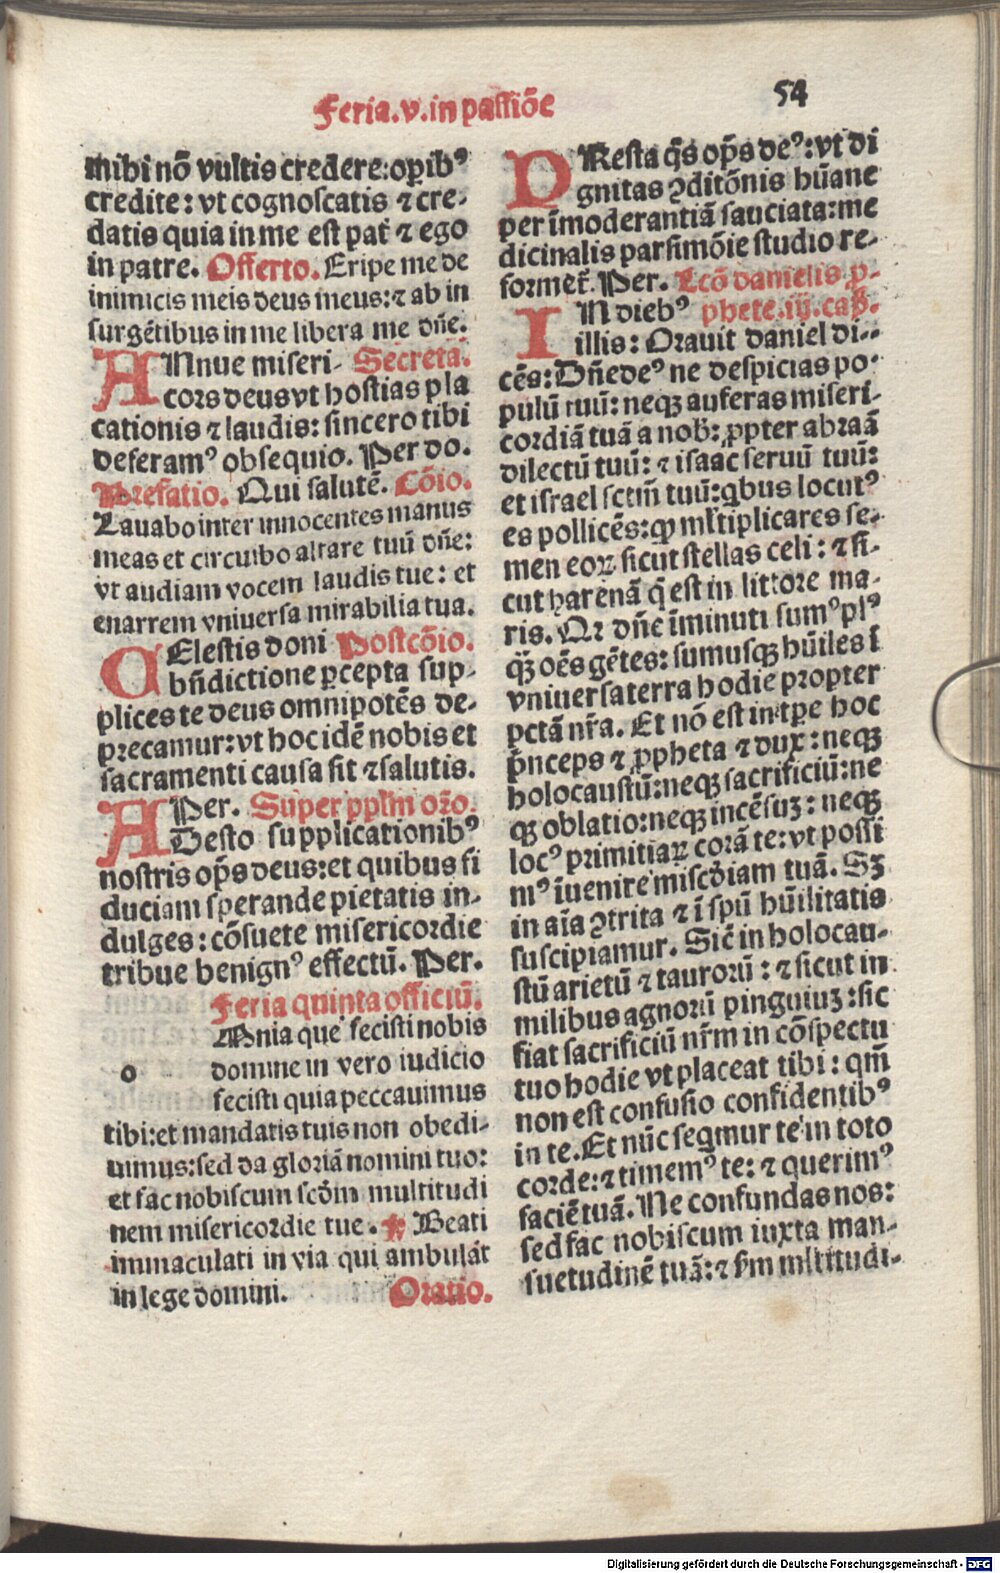 Feria.v.in passiōe
54
mihi nō vultis credere:opibꝰ
credite: vt cognoscatis ⁊ cre-
datis quia in me est pat̄ ⁊ ego
in patre. Offerto. Eripe me de
inimicis meis deus meus:⁊ ab in
surgētibus in me libera me dn̄e.
ANnue miseri- Secreta.
cors deus vt hostias pla
cationis ⁊ laudis: sincero tibi
deferamꝰ obsequio. Per do.
Prefatio. Qui salutē. Cōio.
Lauabo inter innocentes manus
meas et circuibo altare tuū dn̄e:
vt audiam vocem laudis tue: et
enarrem vniuersa mirabilia tua.
CElestis doni Postcōio.
bn̄dictione ꝑcepta sup-
plices te deus omnipotēs de-
precamur:vt hoc idē nobis et
sacramenti causa sit ⁊ salutis.
Per. Super pplm or̄o.
ADesto supplicationibꝰ
nostris op̄s deus:et quibus fi
duciam sperande pietatis in-
dulges: cōsuete misericordie
tribue benignꝰ effectū. Per.
Feria quinta officiū.
o
Mnia que fecisti nobis
domine in vero iudicio
fecisti quia peccauimus
tibi:et mandatis tuis non obedi-
uimus:sed da gloriā nomini tuo:
et fac nobiscum scd̄m multitudi
nem misericordie tue. ps Beati
immaculati in via qui ambulāt
in lege domini. Oratio.
PResta q̄s op̄s deꝰ: vt di
gnitas ꝯditōnis hūane
per īmoderantiā sauciata: me
dicinalis parsimōie studio re-
formet̄. Per. Lcō danielis ꝓ-
phete.iij.cap̄.
IN diebꝰ
illis: Orauit daniel di-
cēs: Dn̄e deꝰ ne despicias po-
pulū tuū: neqꝫ auferas miseri-
cordiā tuā a nob̄: ꝓpter abraā
dilectū tuū: ⁊ isaac seruū tuū:
et israel sctm̄ tuū: qͥbus locutꝰ
es pollicēs: ꝙ ml̄tiplicares se-
men eoꝝ sicut stellas celi: ⁊ si-
cut harenā q̄ est in littore ma-
ris. Qr dn̄e īminuti sumꝰ plꝰ
qꝫ̄ oēs gētes: sumusqꝫ hūiles ī
vniuersa terra hodie propter
pctā nr̄a. Et nō est in tp̄e hoc
p̄nceps ⁊ ꝓpheta ⁊ dux: neqꝫ
holocaustū: neqꝫ sacrificiū: ne
qꝫ oblatio: neqꝫ incēsuꝫ: neqꝫ
locꝰ primitiaꝝ corā te: vt possi
mꝰ īuenire misc̄diam tuā. Sꝫ
in aīa ꝯtrita ⁊ ī spū hūilitatis
suscipiamur. Sic̄ in holocau-
stū arietū ⁊ taurorū: ⁊ sicut in
milibus agnorū pinguiuꝫ: sic
fiat sacrificiū nr̄m in cōspectu
tuo hodie vt placeat tibi: qm̄
non est confusio confidentibꝰ
in te. Et nūc seqͥmur te in toto
corde: ⁊ timemꝰ te: ⁊ querimꝰ
faciē tuā. Ne confundas nos:
sed fac nobiscum iuxta man-
suetudinē tuā: ⁊ s̄m ml̄titudi-
Digitalisierung gefördert durch die Deutsche Forschungsgemeinschaft - DFG